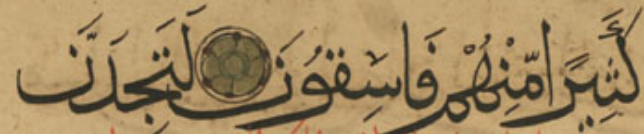 كَثِيرًا مِّنْهُمْ فَاسِقُونَ لَتَجِدَنَّ